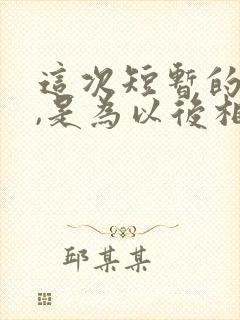 這次短暫的
,是為以後相
邱某某